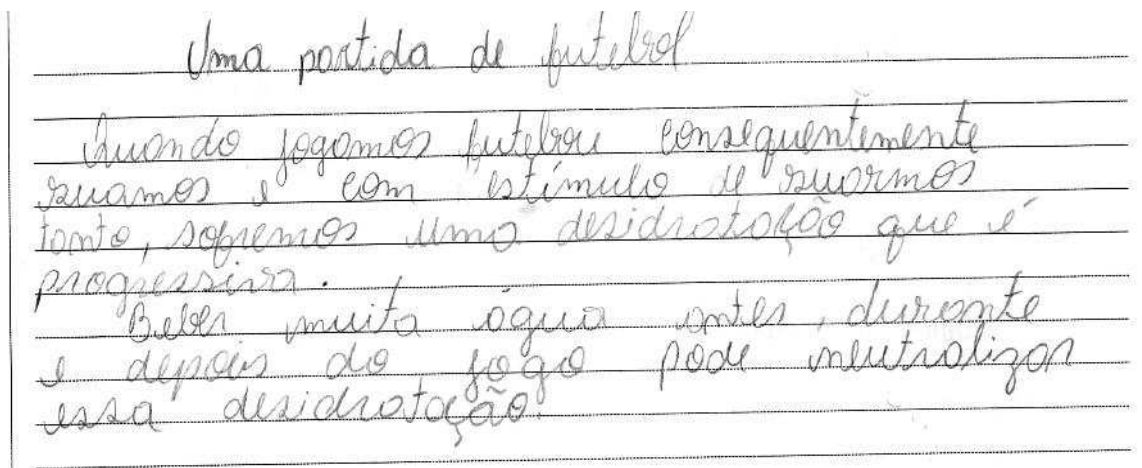 Uma partida de futebol
Quando jogamos futebou consequentemente
suamos e com estímulo de suarmos
tanto, sofremos uma desidratação que é
progressiva.
Beber muita água antes, durante
e depois do jogo pode neutralizar
essa desidratação.